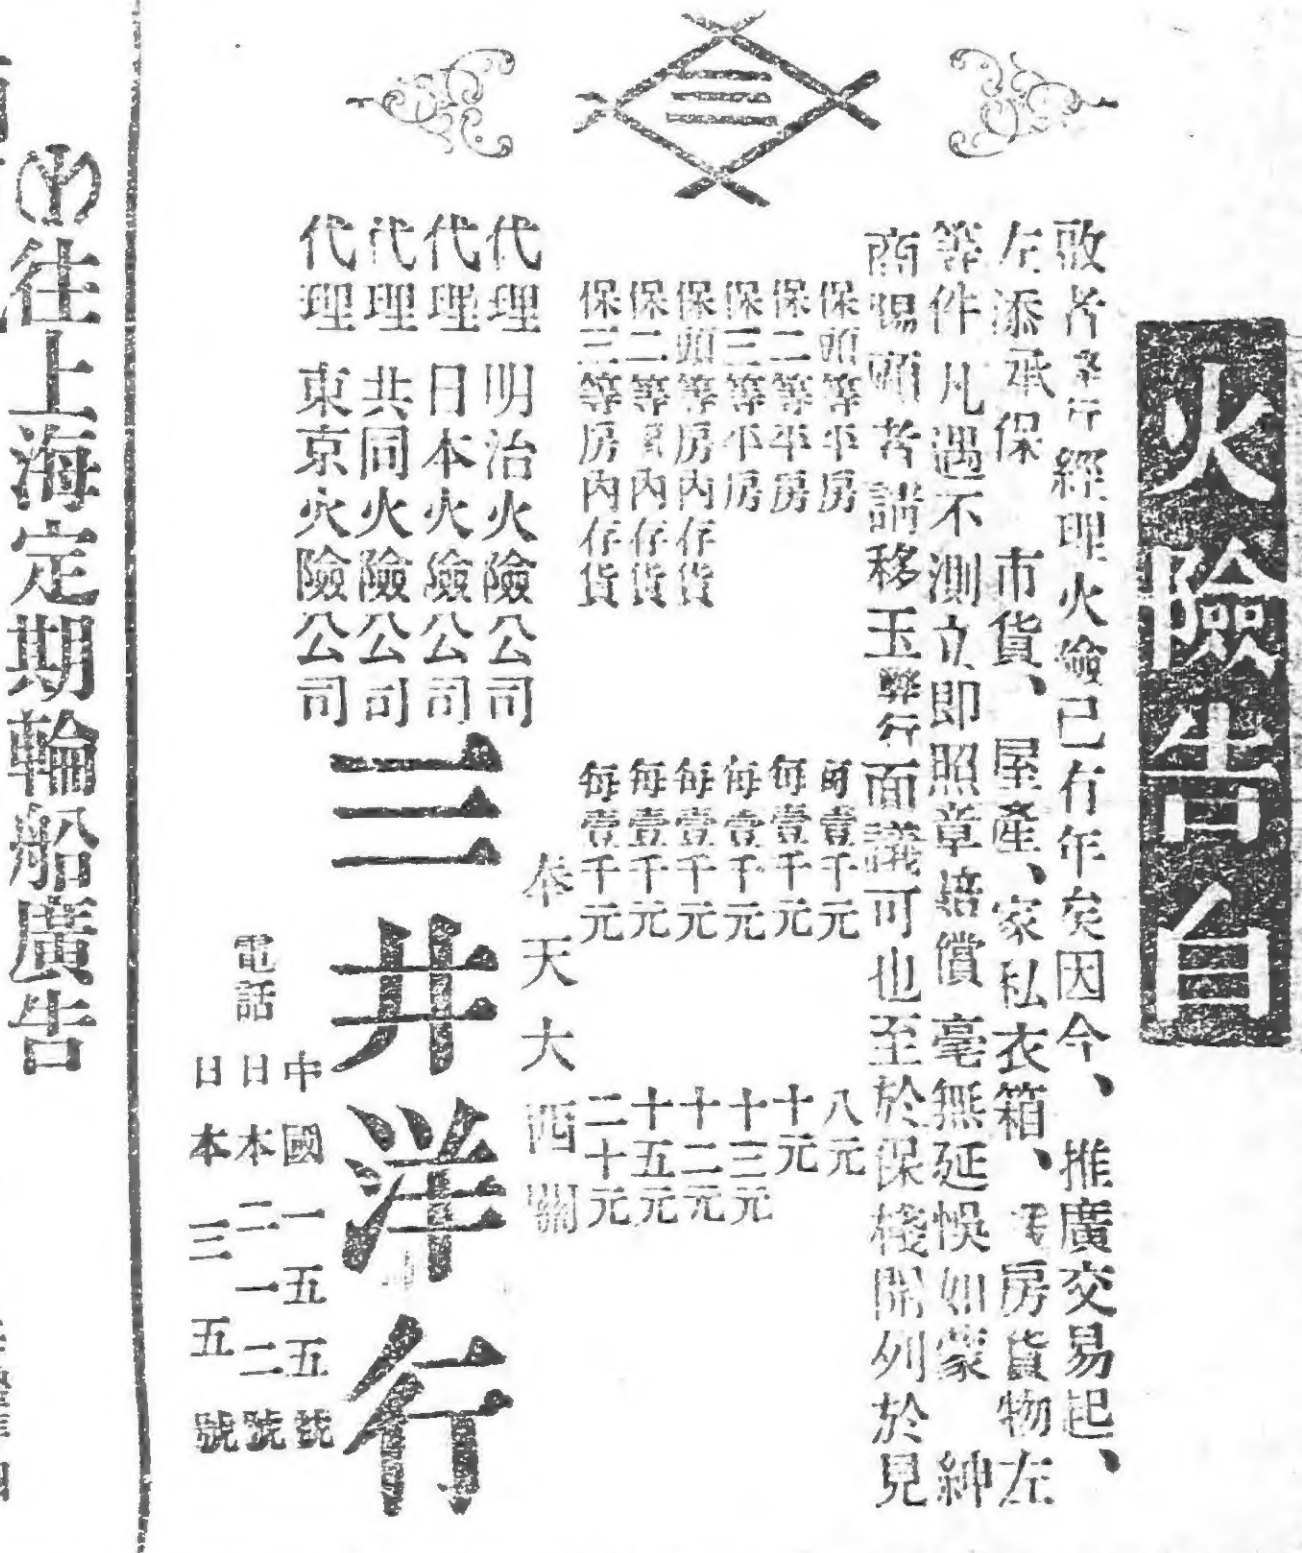 火險告白
敬者敝行經理火險已有年矣因今、推廣交易起、
左添承保 市貨、屋產、家私衣箱、棧房貨物左
等件凡遇不測立即照章賠償毫無延悞如蒙 紳
商賜顧者請移玉弊行面議可也至於保棧開列於見
保頭等平房 每壹千元 八元
保二等平房 每壹千元 十元
保三等平房 每壹千元 十三元
保頭等房內存貨 每壹千元 十二元
保二等 內存貨 每壹千元 十五元
保三等房內存貨 每壹千元 二十元
奉天大西關
代理 明治火險公司
代理 日本火險公司
代理 共同火險公司
代理 東京火險公司
三井洋行
電話 中國一五五號
日本二一二號
日本三五號
往上海定期輪船廣告